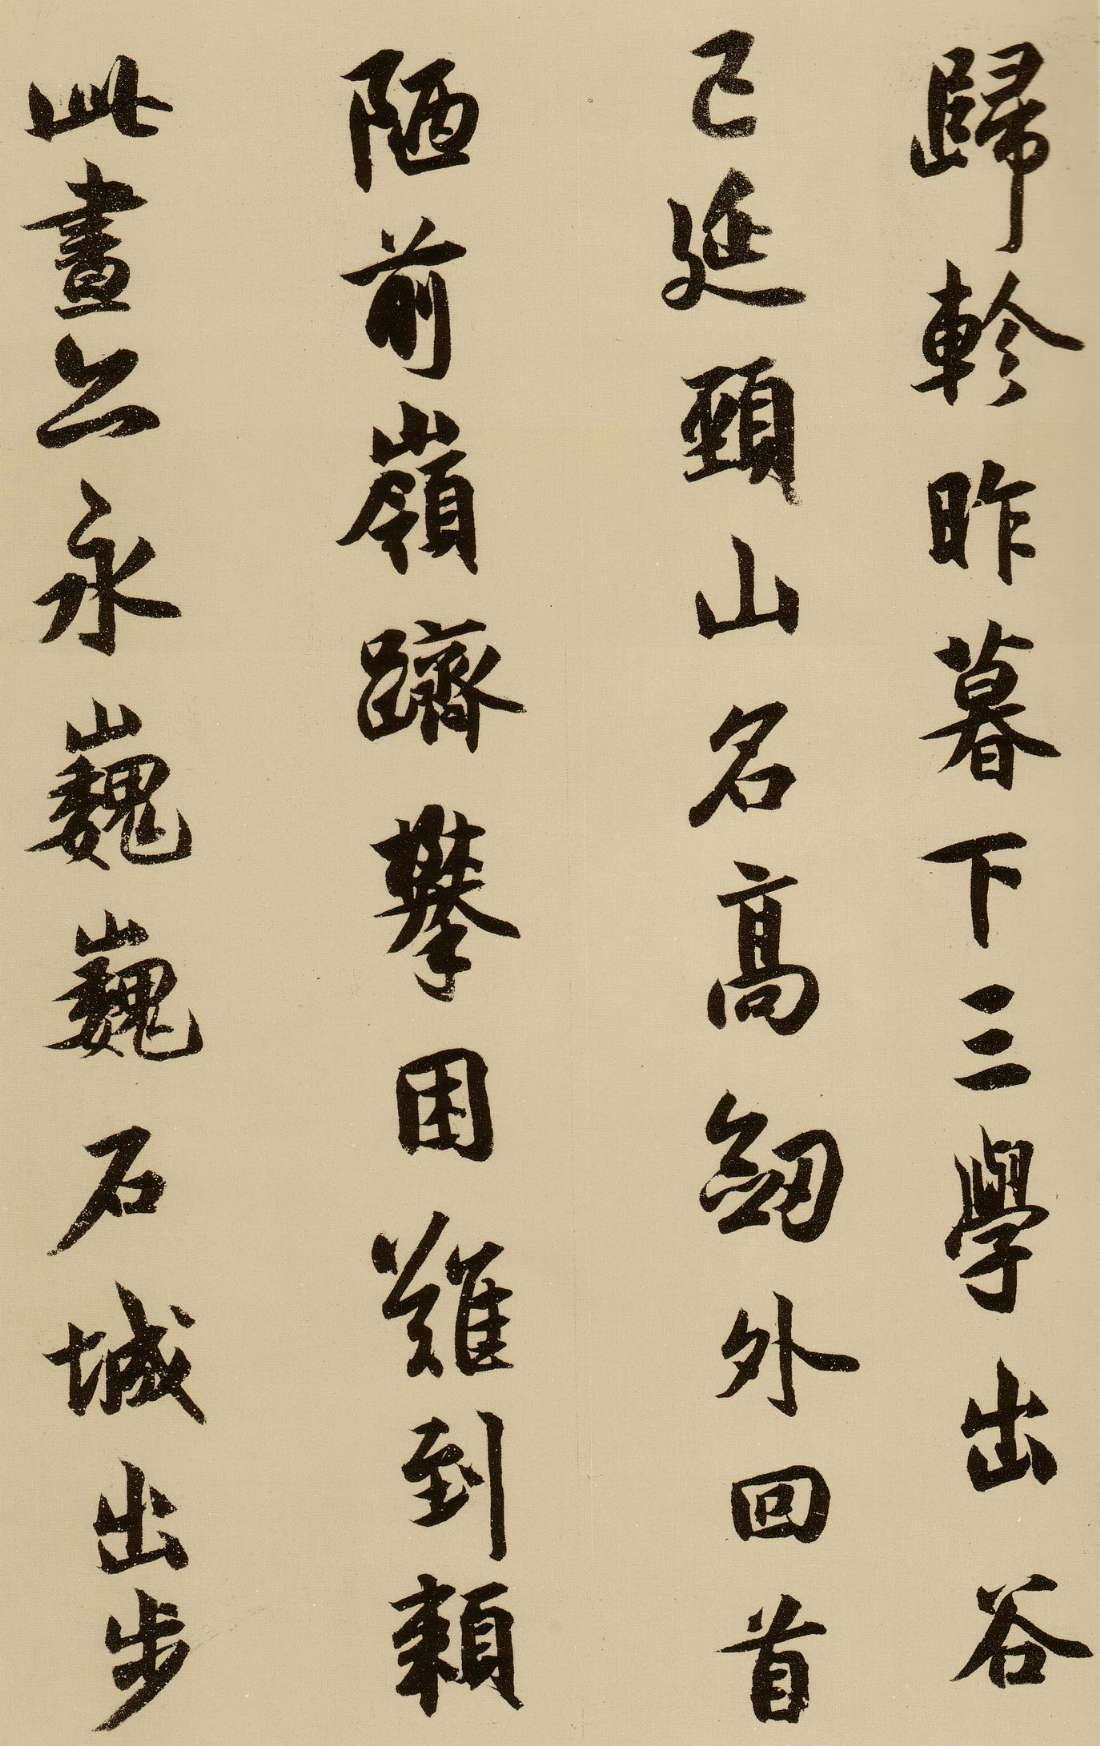 歸軫昨暮下三學出谷
已延頸山名高劒外回首
陋前嶺躋攀困難到賴
此晝亡永巍巍石城出步